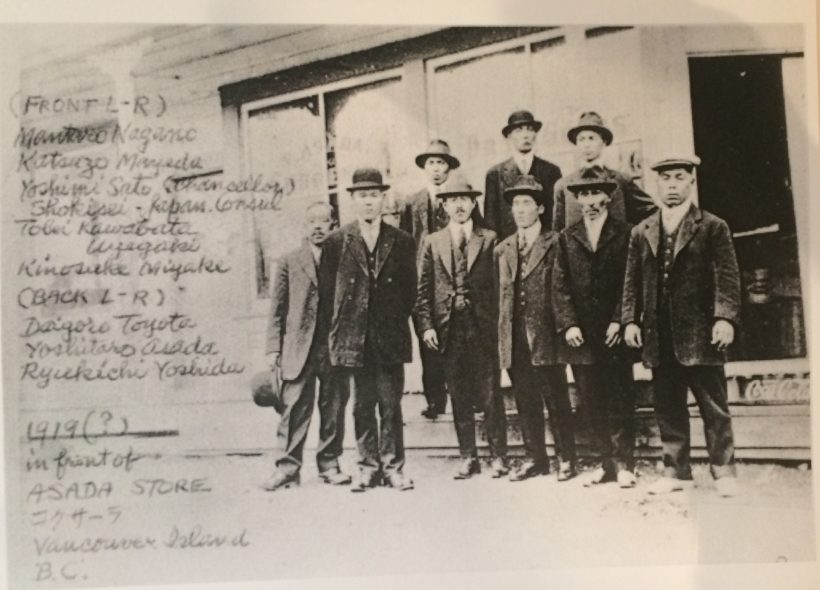 (FRONT L-R)
Mantaro Nagano
Katsuzo Mayeda
Yoshimi Sato (Chancellor)
Shokisei - Japan. Consul
Tobei Kawabata
Uyegaki
Kinosuke Miyake
(BACK L-R)
Daigoro Toyota
Yoshitaro Asada
Ryukichi Yoshida
1919(?)
in front of
ASADA STORE
Vancouver Island
B.C.
Coca-Cola